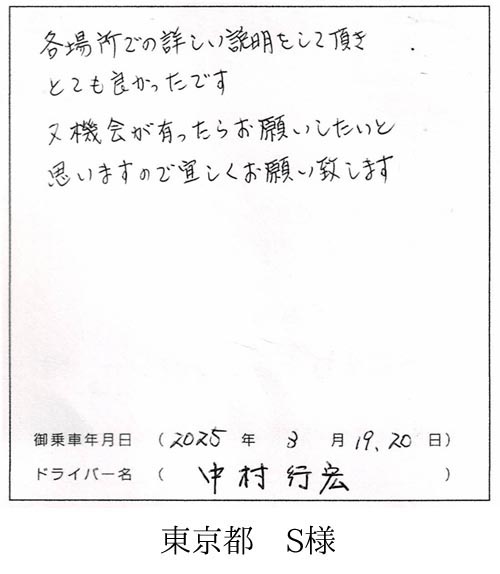 各場所での詳しい説明をして頂き
とても良かったです
又機会が有ったらお願いしたいと
思いますので宜しくお願い致します
御乗車年月日 （2025 年 3 月 19、20 日）
ドライバー名 （ 中村行宏 ）
東京都　S様